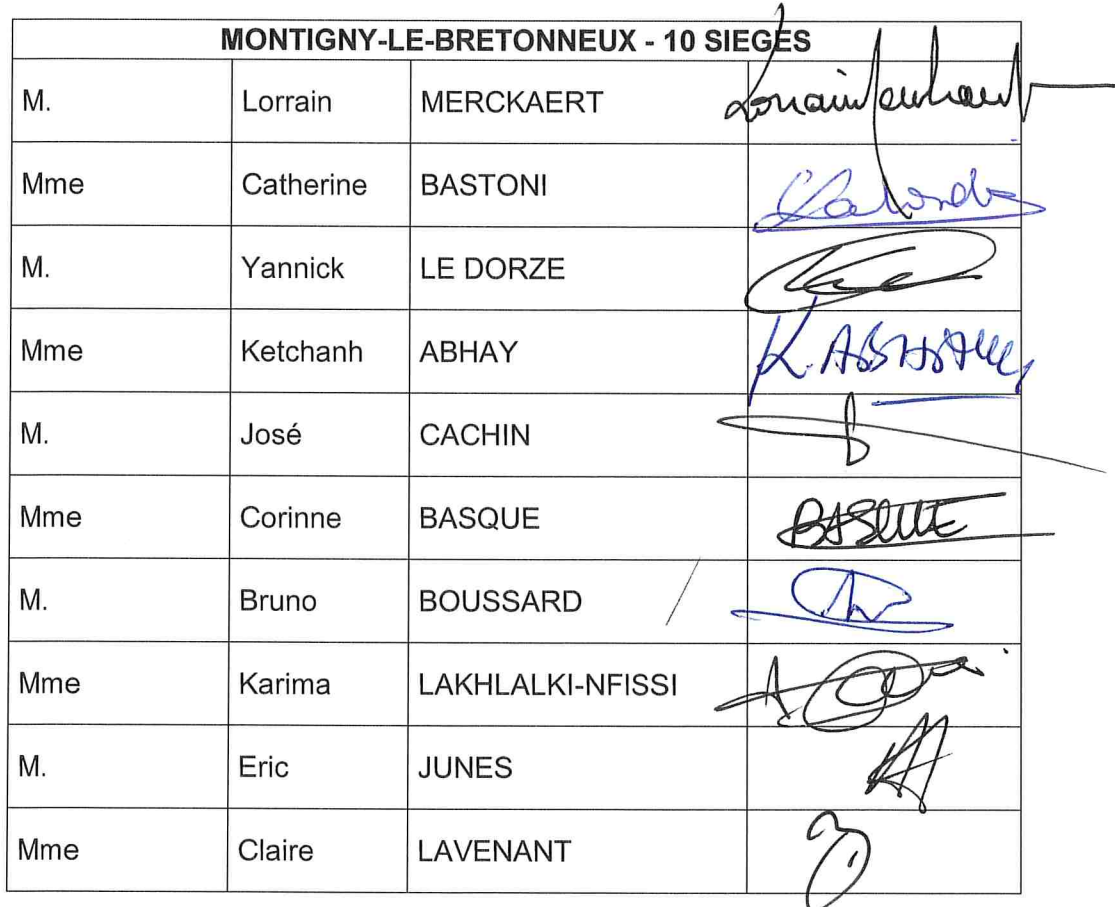 MONTIGNY-LE-BRETONNEUX - 10 SIEGES
M. Lorrain MERCKAERT
Mme Catherine BASTONI
M. Yannick LE DORZE
Mme Ketchanh ABHAY K. ABHAY
M. José CACHIN
Mme Corinne BASQUE BASQUE
M. Bruno BOUSSARD
Mme Karima LAKHLALKI-NFISSI
M. Eric JUNES
Mme Claire LAVENANT